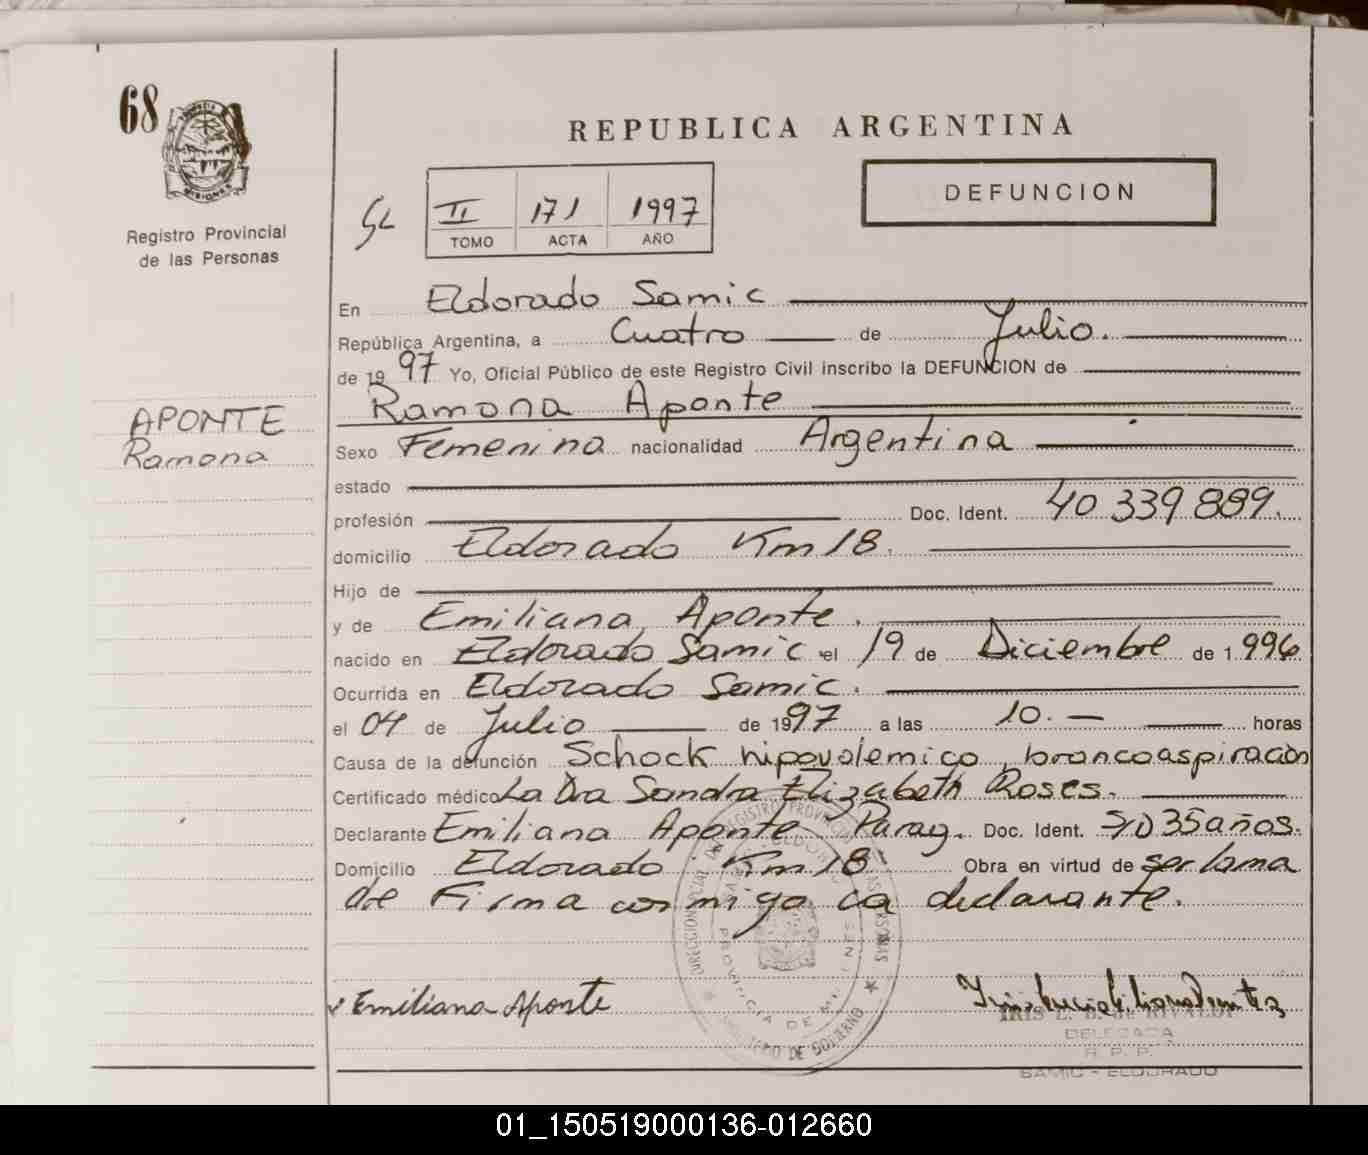 68
Registro Provincial
de las Personas
REPUBLICA ARGENTINA
DEFUNCION
II 171 1997
TOMO ACTA AÑO
En Eldorado Samic
República Argentina, a Cuatro de Julio.
de 1997 Yo, Oficial Público de este Registro Civil inscribo la DEFUNCION de
Ramona Aponte
APONTE
Ramona
Sexo Femenina nacionalidad Argentina
estado
profesión Doc. Ident. 40 339 889.
domicilio Eldorado Km 18.
Hijo de
y de Emiliana Aponte.
nacido en Eldorado Samic el 19 de Diciembre de 1.996
Ocurrida en Eldorado Samic.
el 04 de Julio de 1997 a las 10.— horas
Causa de la defunción Schock hipovolemico, broncoaspiración
Certificado médico La Dra Sandra Elizabeth Roses.
Declarante Emiliana Aponte Parag. Doc. Ident. S/D 35 años.
Domicilio Eldorado Km 18 Obra en virtud de ser la ma
dre Firma conmigo la declarante.
Emiliana Aponte
DELEGADA
R. P. P.
SAMIC - ELDORADO
01_150519000136-012660